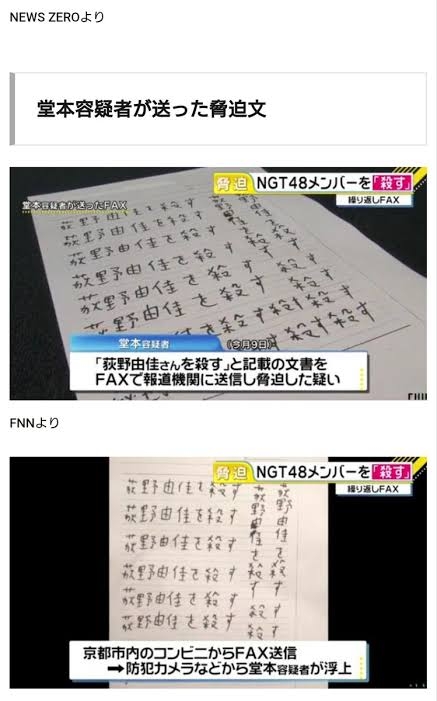 NEWS ZEROより
堂本容疑者が送った脅迫文
脅迫 NGT48メンバーを「殺す」
繰り返しFAX
堂本容疑者が送ったFAX
荻野由佳を殺す
荻野由佳を殺す
荻野由佳を殺す
荻野由佳を殺す
荻野由佳を殺す
堂本容疑者 (今月9日)
「荻野由佳さんを殺す」と記載の文書を
FAXで報道機関に送信し脅迫した疑い
FNNより
脅迫 NGT48メンバーを「殺す」
繰り返しFAX
荻野由佳を殺す
荻野由佳を殺す
荻野由佳を殺す
荻野由佳を殺す
荻野由佳を殺す
荻野由佳を殺す
荻野由佳を殺す
荻野由佳を殺す
京都市内のコンビニからFAX送信
➡防犯カメラなどから堂本容疑者が浮上